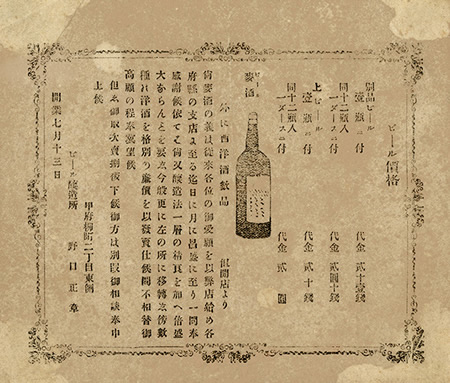 ビール價格
別品ビール
壹瓶ニ付 代金 貳十壹錢
同十二瓶入
一ダースニ付 代金 貳圓十錢
上ビール
壹瓶ニ付 代金 貳十錢
同十二瓶入
一ダースニ付 代金 貳圓
麥酒
外に西洋酒數品
開店より
尙麥酒の義は從來各位の御愛顧を以弊店始め各
府縣の支店よ至る迄日に月に昌盛に至り一同奉
感謝候依てこ尙又釀造法一層の精良を加へ倍盛
大からんとを要し今般更に左の所に移轉し傍數
種の洋酒を格別の廉價を以發賣仕候間不相替御
高顧の程奉冀望候
但し御取次賣捌被下候御方は別段御相談奉申
上候
開業七月十三日
甲府柳町二丁目東側
ビール釀造所 野口正章